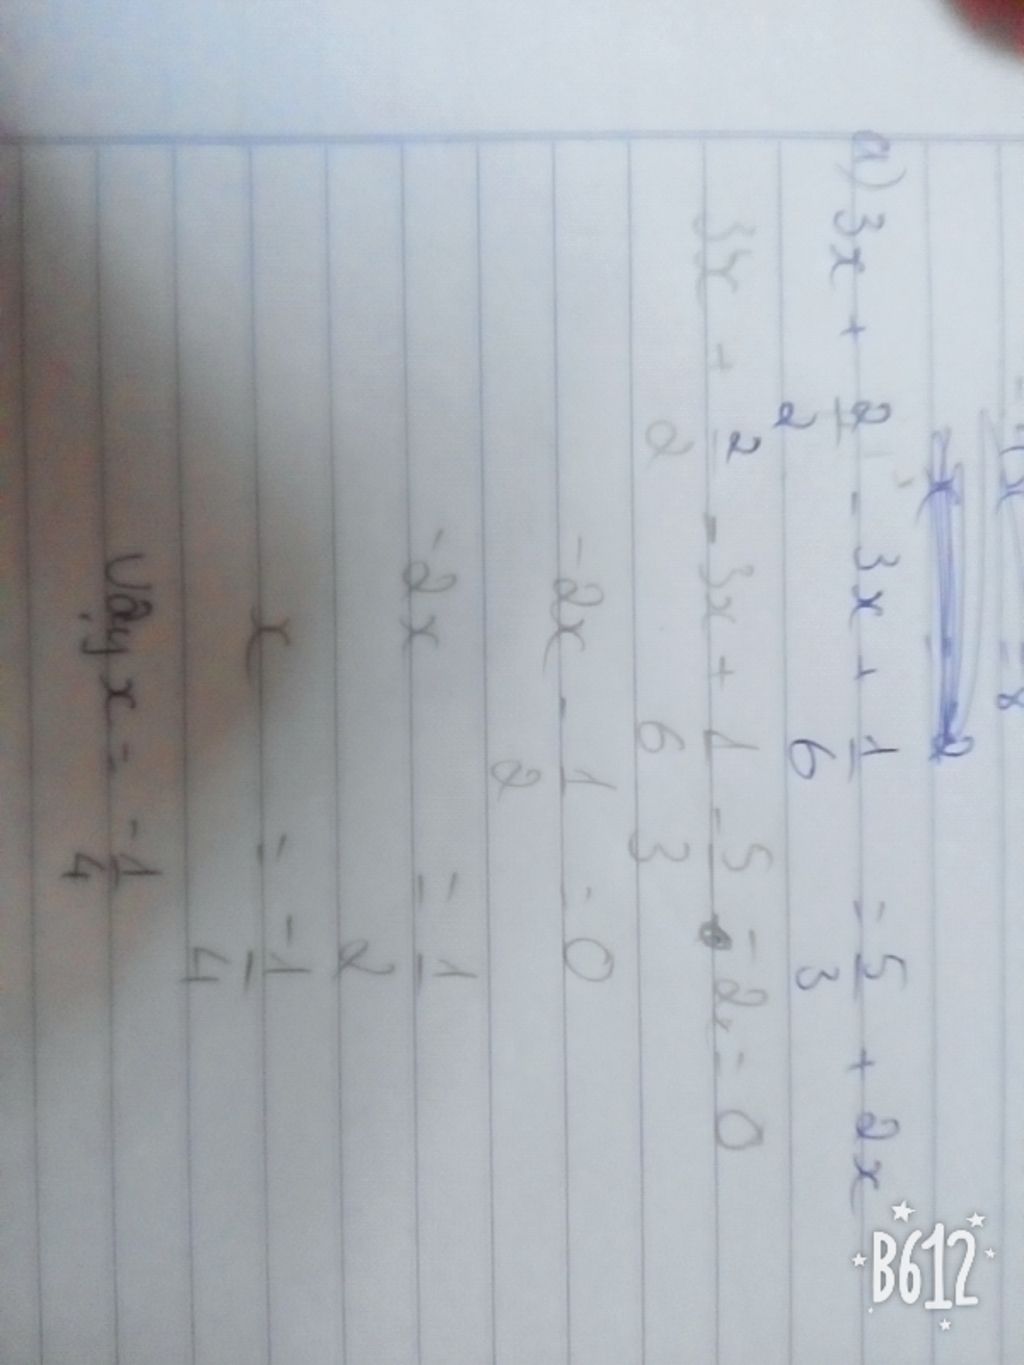 = 8
a) 3x + 2/2 - 3x + 1/6 = 5/3 + 2x
3x + 2/2 - 3x + 1/6 - 5/3 - 2x = 0
-2x - 1/2 = 0
-2x = 1/2
x = -1/4
Vậy x = -1/4
B612